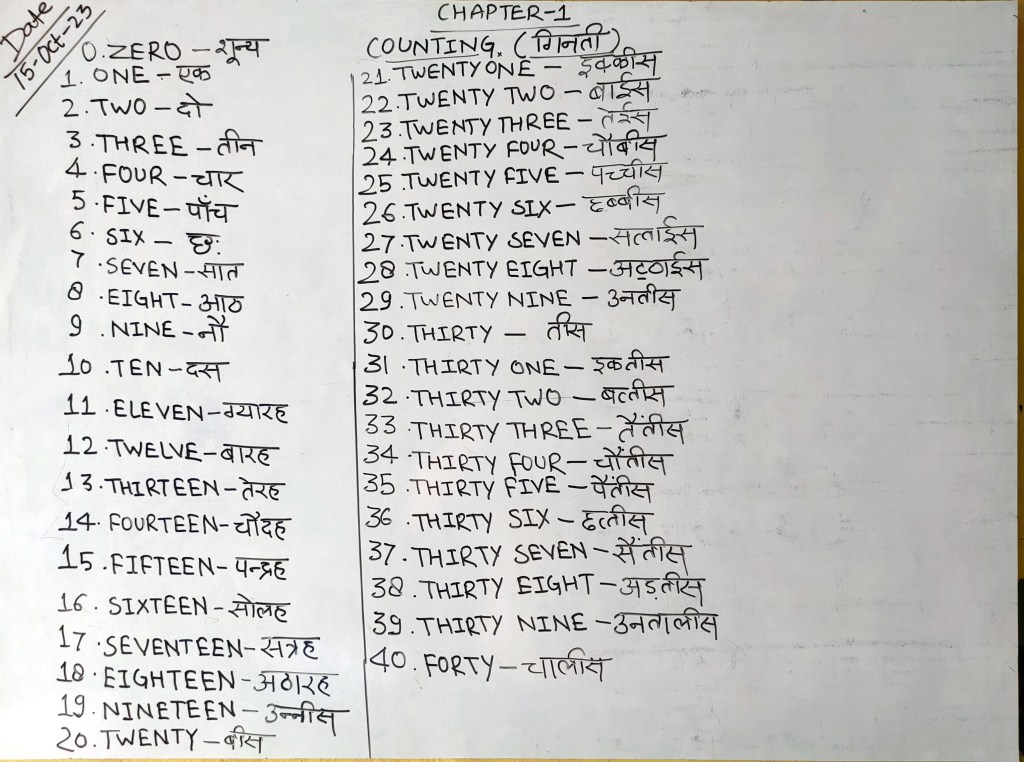 Date
15-Oct-23
CHAPTER-1
COUNTING. (गिनती)
0. ZERO - शून्य
1. ONE - एक
2. TWO - दो
3. THREE - तीन
4. FOUR - चार
5. FIVE - पाँच
6. SIX - छः
7. SEVEN - सात
8. EIGHT - आठ
9. NINE - नौ
10. TEN - दस
11. ELEVEN - ग्यारह
12. TWELVE - बारह
13. THIRTEEN - तेरह
14. FOURTEEN - चौदह
15. FIFTEEN - पन्द्रह
16. SIXTEEN - सोलह
17. SEVENTEEN - सत्रह
18. EIGHTEEN - अठारह
19. NINETEEN - उन्नीस
20. TWENTY - बीस
21. TWENTY ONE - इक्कीस
22. TWENTY TWO - बाईस
23. TWENTY THREE - तेईस
24. TWENTY FOUR - चौबीस
25. TWENTY FIVE - पच्चीस
26. TWENTY SIX - छब्बीस
27. TWENTY SEVEN - सत्ताईस
28. TWENTY EIGHT - अट्ठाईस
29. TWENTY NINE - उनतीस
30. THIRTY - तीस
31. THIRTY ONE - इकतीस
32. THIRTY TWO - बत्तीस
33. THIRTY THREE - तैंतीस
34. THIRTY FOUR - चौंतीस
35. THIRTY FIVE - पैंतीस
36. THIRTY SIX - छत्तीस
37. THIRTY SEVEN - सैंतीस
38. THIRTY EIGHT - अड़तीस
39. THIRTY NINE - उनतालीस
40. FORTY - चालीस